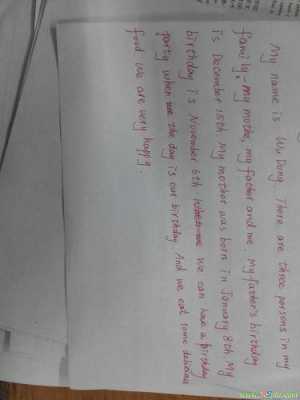 My name is Wu Dong. There are three persons in my
family, my mother, my father and me. My father's birthday
is December 15th. My mother was born in January 8th. My
birthday is November 6th. we can have a birthday
party, when the day is our birthday. And we eat some delicious
food. We are very happy.